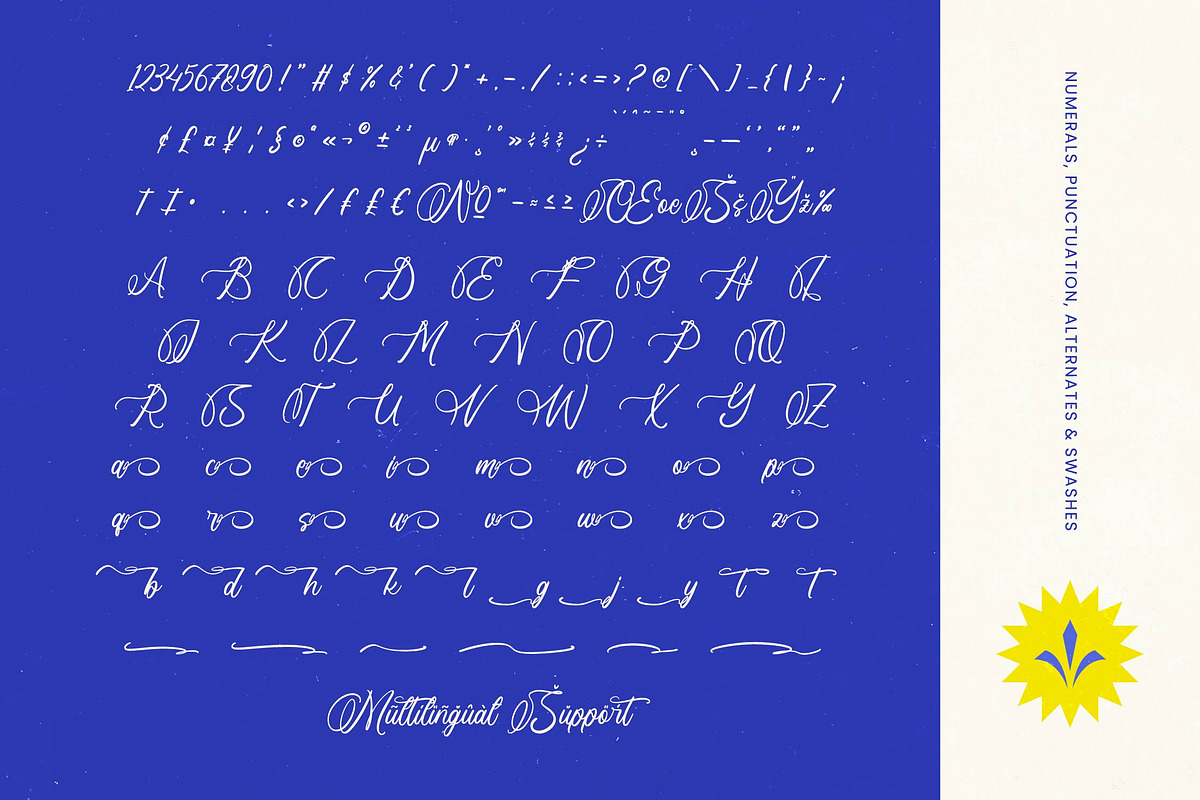 1234567890!"#$%&'()*+,-./:;<=>?@[\]_{|}~¡
¢£¤¥¦§©ª«¬®±²³µ¶·¸¹º»¼½¾¿÷–—‘’‚“”„
†‡•...‹›⁄ƒ₤€№™−≈≤≥ŒœŠšŸž‰
A B C D E F G H I
J K L M N O P Q
R S T U V W X Y Z
a c e i m n o p
q r s u v w x z
b d h k l g j y T T
Mũltilingûàl Šüppört
NUMERALS, PUNCTUATION, ALTERNATES & SWASHES